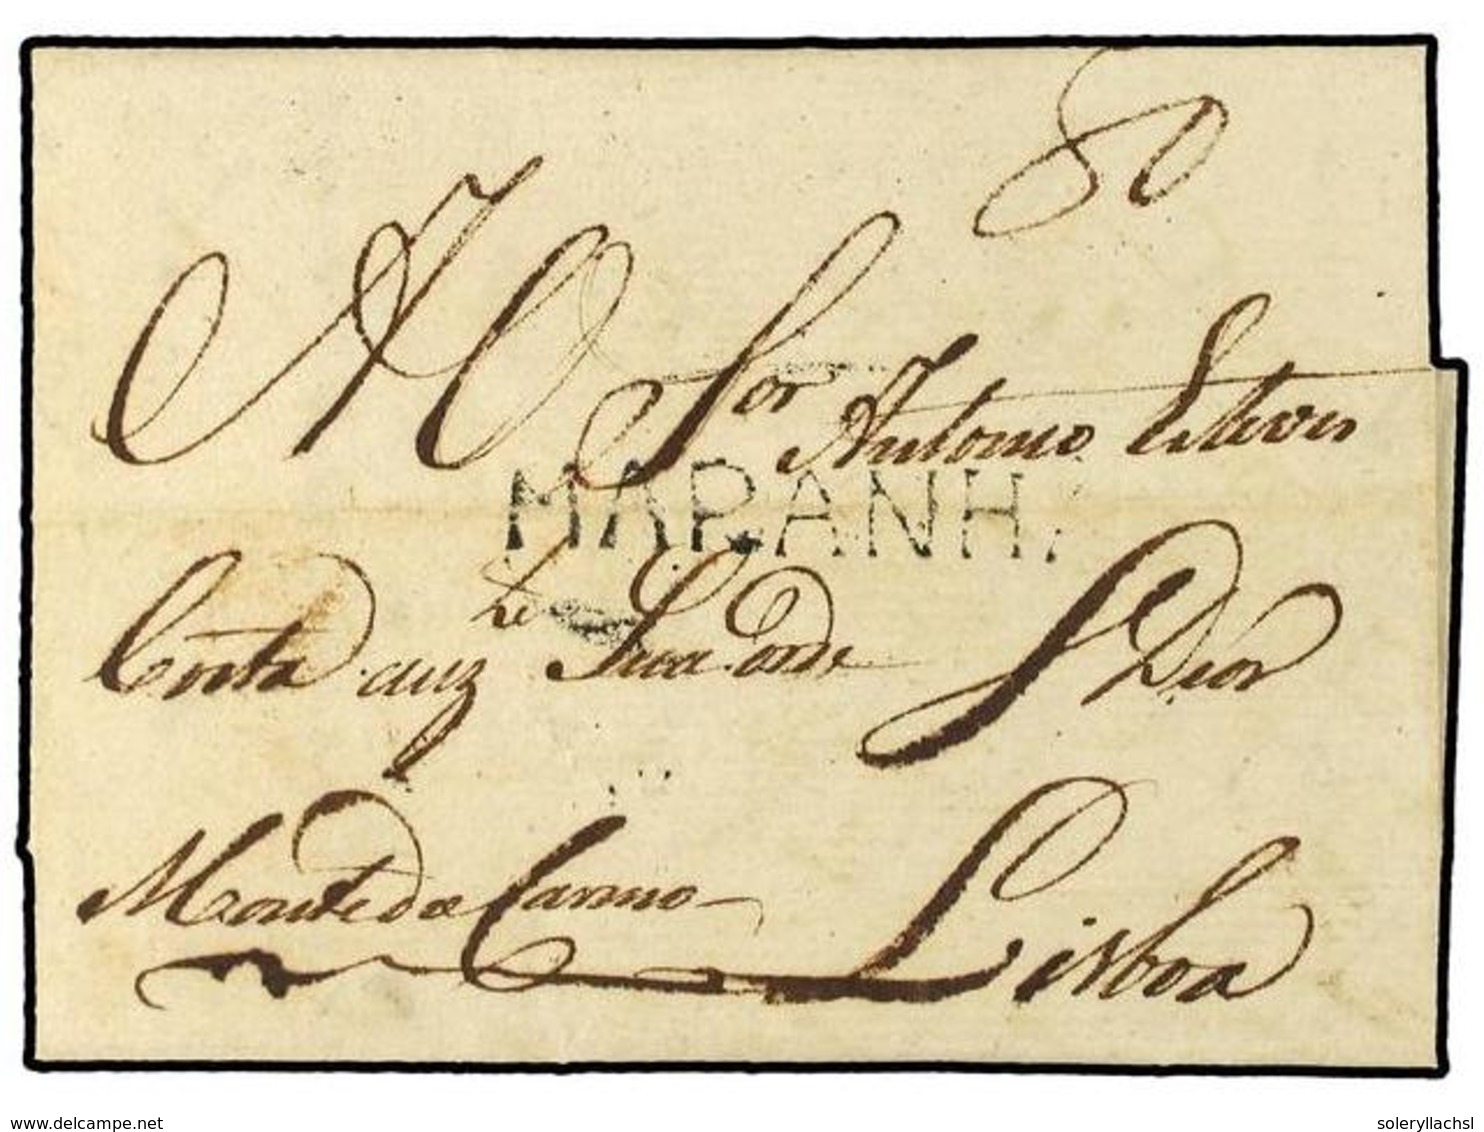 80
AO Sor Antonio Esteves
MARANH.
Costa auz Sua orde S Dios
Monte do Carmo - Lisboa
www.delcampe.net
soleryllachsl